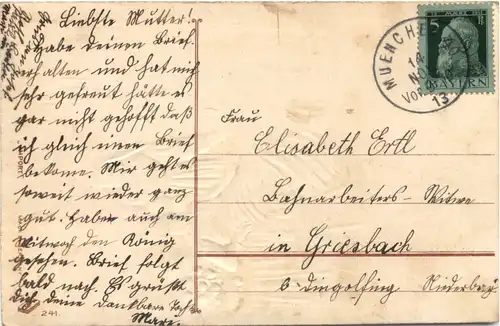 Liebste Mutter!
Habe deinen Brief
erhalten und hat mich
sehr gefreut hätte es
gar nicht gehofft daß
ich gleich einen Brief
bekome. Mir geht es
soweit wieder ganz
gut. Habe auch am
Mitwoch den König
gesehen. Brief folgt
bald nach. Es grüßt
Dich, deine dankbare Toch
Marie.
241.
MUENCHEN
14
NOV
Vor
13
BAYERN
Frau
Elisabeth Ertl
Bahnarbeiters- Witwe
in Griesbach
b Dingolfing Niederbay